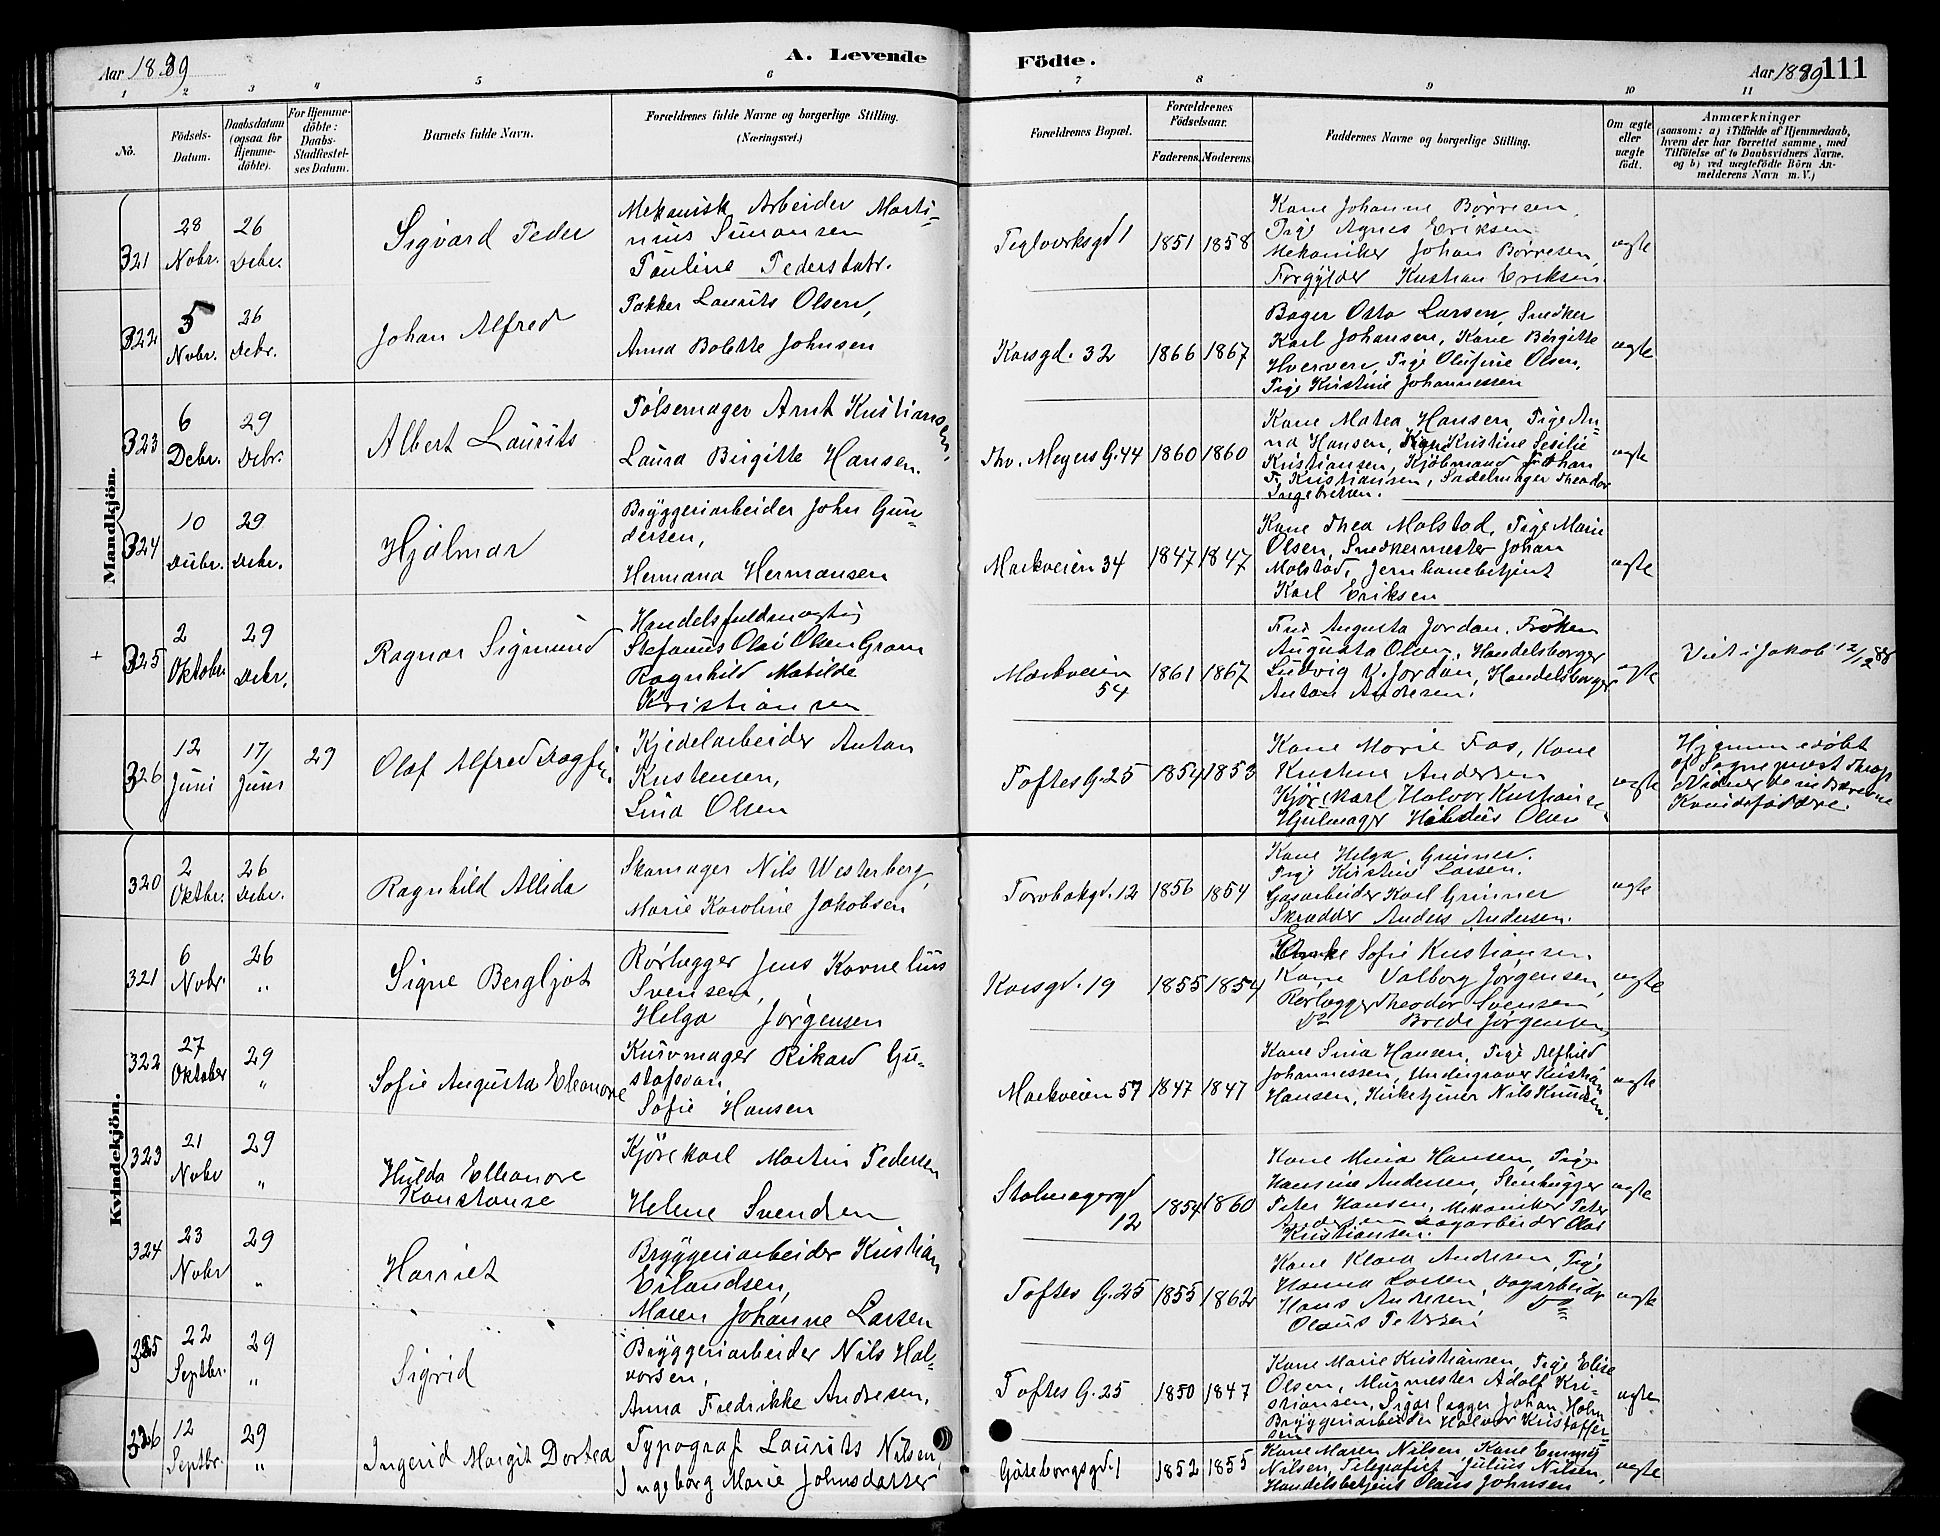 Aar 1889
A. Levende
Födte.
Aar 1889
111
1
2
3
4
5
6
7
8
9
10
11
No.
Födsels-
Datum.
Daabsdatum
(ogsaa for
Hjemme-
döbte).
For Hjemme-
döbte:
Daabs-
Stadfæstel-
ses Datum.
Barnets fulde Navn.
Forældrenes fulde Navne og borgerlige Stilling.
(Næringsvei.)
Forældrenes Bopæl.
Forældrenes
Födselsaar.
Faderens.
Moderens.
Faddernes Navne og borgerlige Stilling.
Om ægte
eller
uægte
födt.
Anmærkninger
(saasom: a) i Tilfælde af Hjemmedaab,
hvem der har forrettet samme, med
Tilföielse af to Daabsvidners Navne.
og b) ved uægtefödte Börn An-
melderens Navn m. V.)
Mandkjön.
321
28
Nobr.
26
Debr.
Sigvard Peder
Mekanisk Arbeider Marti-
nius Simonsen
Pauline Pedersdatr.
Teglverksgd 1
1851
1858
Kone Johanne Børresen,
Pige Agnes Eriksen
Mekaniker Johan Børresen,
Forgylder Kristian Eriksen.
ægte
322
5
Nobr.
26
Debr.
Johan Alfred
Pakker Laurits Olsen,
Anna Bolette Johnsen
Korsgd. 32
1866
1867
Bager Otto Larsen, Snedker
Karl Johansen, Kone Bergitte
Hverven, Pige Olufine Olsen,
Pige Kristine Johannessen
ægte
323
6
Debr.
29
Debr.
Albert Laurits
Pølsemager Arnt Kristiansen,
Laura Birgitte Hansen.
Thv. Meyers G. 44
1860
1860
Kone Matea Hansen, Pige An-
na Hansen, Kone Kristine Sesilie
Kristiansen, Kjöbmand Johan
Fr. Kristiansen, Sadelmager Theodor
Ingebretsen.
ægte
324
10
Debr.
29
Debr.
Hjalmar
Bryggeriarbeider John Gun-
dersen,
Hermana Hermansen
Markveien 34
1847
1847
Kone Thea Molstad, Pige Marie
Olsen, Snedkermester Johan
Molstad, Jernbanebetjent
Karl Eriksen
ægte
+
325
2
Oktober
29
Debr.
Ragnar Sigmund
Handelsfuldmægtig
Stefanus Olai Olsen Gram
Ragnhild Matilde
Kristiansen
Markveien
54
1861
1867
Fru Augusta Jordan, Fröken
Augusta Olsen, Handelsborger
Ludvig V. Jordan, Handelsborger
Anton Andersen.
ægte
Viet i Jakob 12/12 88
326
12
Juni
17
Juni
29
Olaf Alfred Dagfin
Kjedelarbeider Anton
Kristensen,
Lina Olsen
Toftes G. 25
1854
1853
Kone Marie Fos, Kone
Kristine Andersen
Kjörekarl Halvor Kristianse
Hjulmager Olsen
ægte
Hjemmedøbt
af Sogneprest
Vidner
Kvindefaddre.
Kvindekjön.
320
2
Oktbr.
26
Debr.
Ragnhild Allida
Skomager Nils Westerberg,
Marie Karoline Jakobsen
Torvbakgd. 12
1856
1854
Kone Helga Grinner.
Pige Kirstin Larsen.
Gasarbeider Karl Grinner
Skrædder Anders Andersen.
ægte
321
6
Nobr.
26
"
Signe Bergljot
Rørlægger Jens Kornelius
Svensen,
Helga Jørgensen
Korsgd. 19
1855
1854
Enke Sofie Kristiansen
Kone Valborg Jørgensen,
Rørlægger Theodor Svensen
Do Brede Jørgensen,
ægte
322
27
Oktober
29
"
Sofie Augusta Eleanore
Kurvmager Rikard Gu-
stafsson,
Sofie Hansen
Markveien 57
1847
1847
Kone Lina Hansen, Pige Alfhild
Johannessen, Undergraver Kristian
Hansen, Kirketjener Nils Knudsen.
ægte
323
21
Nobr
29
"
Hulda Elleanore
Konstanse
Kjörekarl Martin Pedersen
Helene Svendsen
Stolmagergd
12
1854
1860
Kone Mina Hansen, Pige
Hansine Andersen, Stenhugger
Peter Hansen, Mekaniker Peter
Andersen Dagarbeider Olai
Kristiansen.
ægte
324
23
Nobr
29
"
Harriet
Bryggeriarbeider Kristian
Erlandsen,
Maren Johanne Larsen
Toftes G. 25
1855
1862
Kone Klara Andersen, Pige
Hanna Larsen, Dagarbeidr
Hans Andersen, Do
Olaus Petersen
ægte
325
22
Septbr.
29
"
Sigrid
Bryggeriarbeider Nils Hal-
vorsen,
Anna Fredrikke Andresen,
Toftes G. 25
1850
1847
Kone Marie Kristiansen, Pige Elise
Olsen, Murmester Adolf Kri-
stiansen, Johan Holm
Bryggeriarbeider Halvor Kristoffer-
sen
ægte
326
12
Septbr.
29
"
Ingerid Margit Dortea
Typograf Laurits Nilsen,
Ingeborg Marie Johnsdatter
Göteborgsgd. 1
1852
1855
Kone Maren Nilsen, Kone Emmy
Nilsen, Telegrafist Julius Nilsen,
Handelsbetjent Olaus Johnsen
ægte